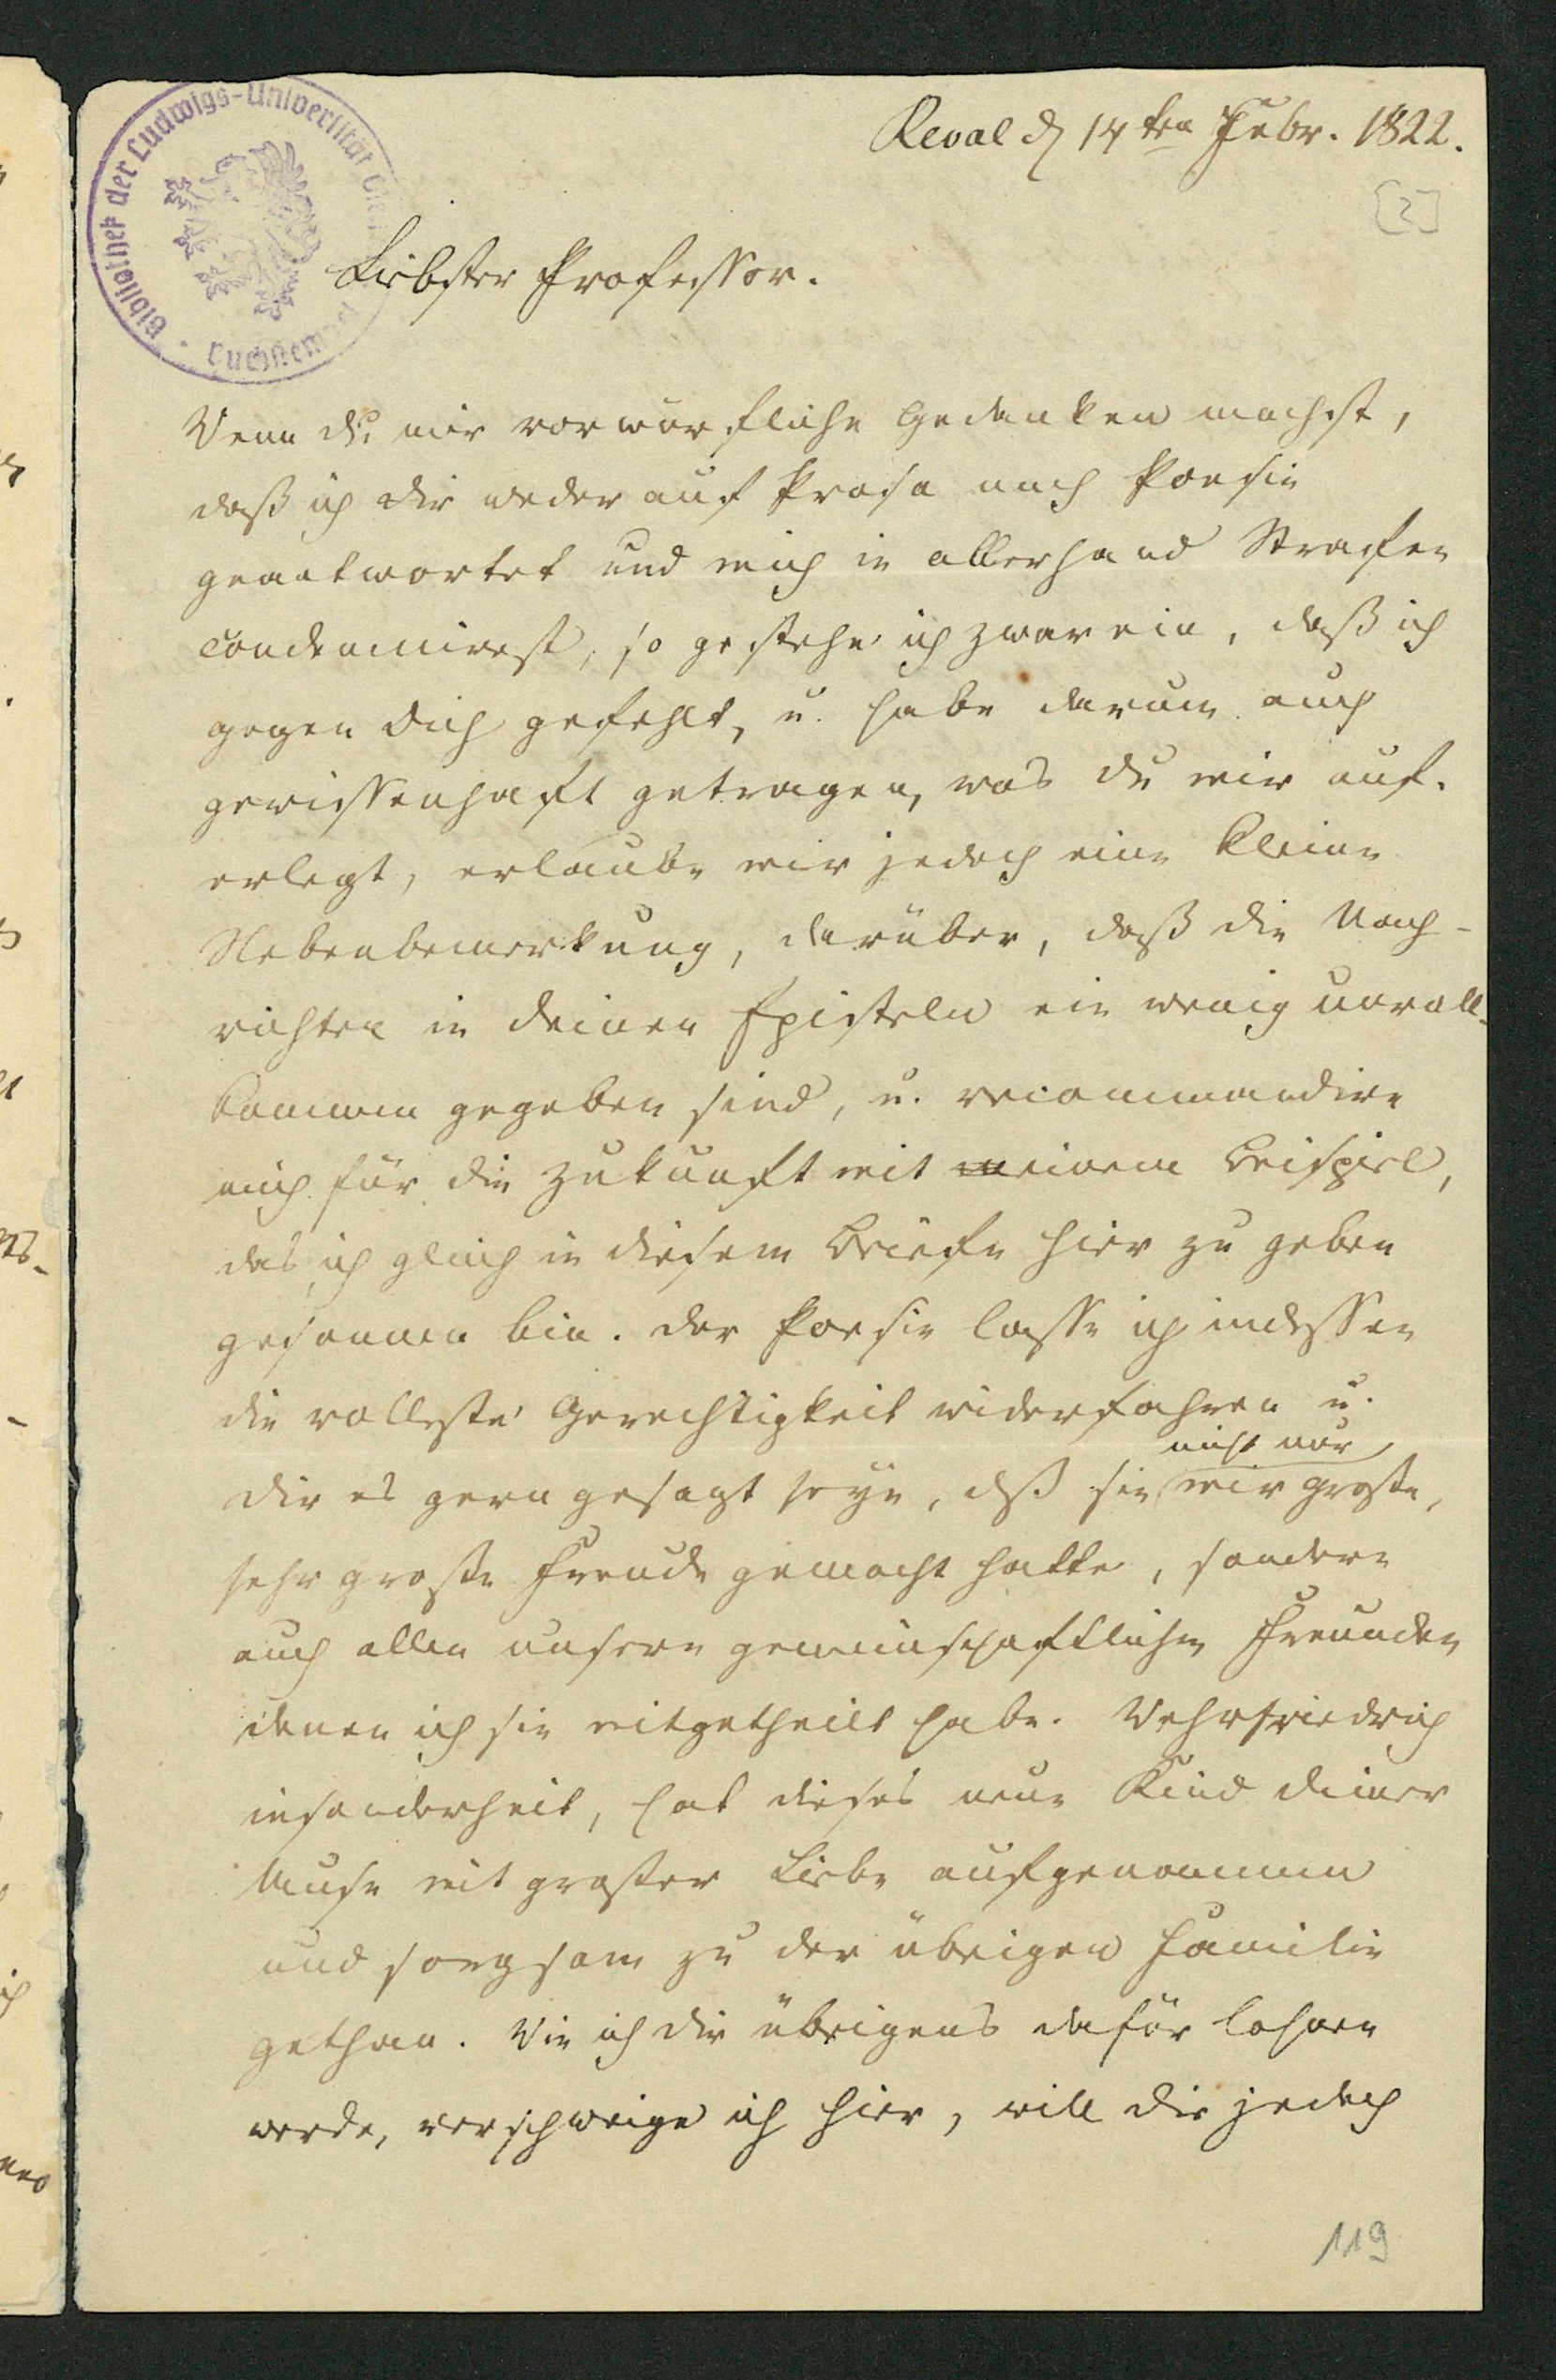 Reval d 14ten Febr. 1822.
[2]
Bibliothek der Ludwigs-Universität
Liebster Professor.
Wenn du mir vorwürfliche Gedanken machst,
daß ich dir weder auf Prosa noch Poesie
geantwortet und mich in allerhand Strafen
condemnirest, so gestehe ich zwar ein, daß ich
gegen dich gefehlt, u. habe darum auch
gewissenhaft getragen, was du mir auf-
erlegt, erlaube mir jedoch eine kleine
Nebenbemerkung, darüber, daß die Nach-
richten in deinen Episteln ein wenig unvoll-
kommen gegeben sind, u. recommandire
mich für die Zukunft mit meinem Beispiel,
das ich gleich in diesem Briefe hier zu geben
gesonnen bin. Der Poesie lasse ich indessen
die volleste Gerechtigkeit widerfahren u.
nicht nur
dir es gern gesagt seyn, dß sie mir große,
sehr große Freude gemacht hatte, sondern
auch allen unsern gemeinschaftlichen Freunden
denen ich sie mitgetheilt habe. Wehrfriedrich
insonderheit, hat dieses neue Kind deiner
Muse mit großer Liebe aufgenommen
und sorgsam zu der übrigen Familie
gethan. Wie ich dir übrigens dafür lohnen
werde, verschweige ich hier, will dir jedoch
119